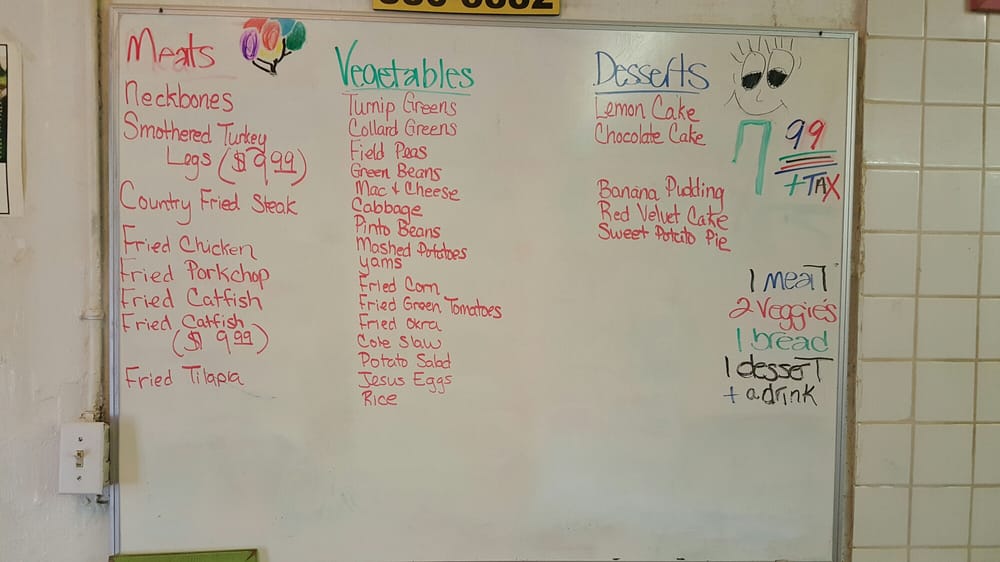 Meats
Neckbones
Smothered Turkey
Legs ($9.99)
Country Fried Steak
Fried Chicken
Fried Porkchop
Fried Catfish
Fried Catfish
($9.99)
Fried Tilapia
Vegetables
Turnip Greens
Collard Greens
Field Peas
Green Beans
Mac + Cheese
Cabbage
Pinto Beans
Mashed Potatoes
Yams
Fried Corn
Fried Green Tomatoes
Fried Okra
Cole Slaw
Potato Salad
Jesus Eggs
Rice
Desserts
Lemon Cake
Chocolate Cake
Banana Pudding
Red Velvet Cake
Sweet Potato Pie
7 99
+ TAX
1 meaT
2 Veggie's
1 bread
1 desserT
+ a drink